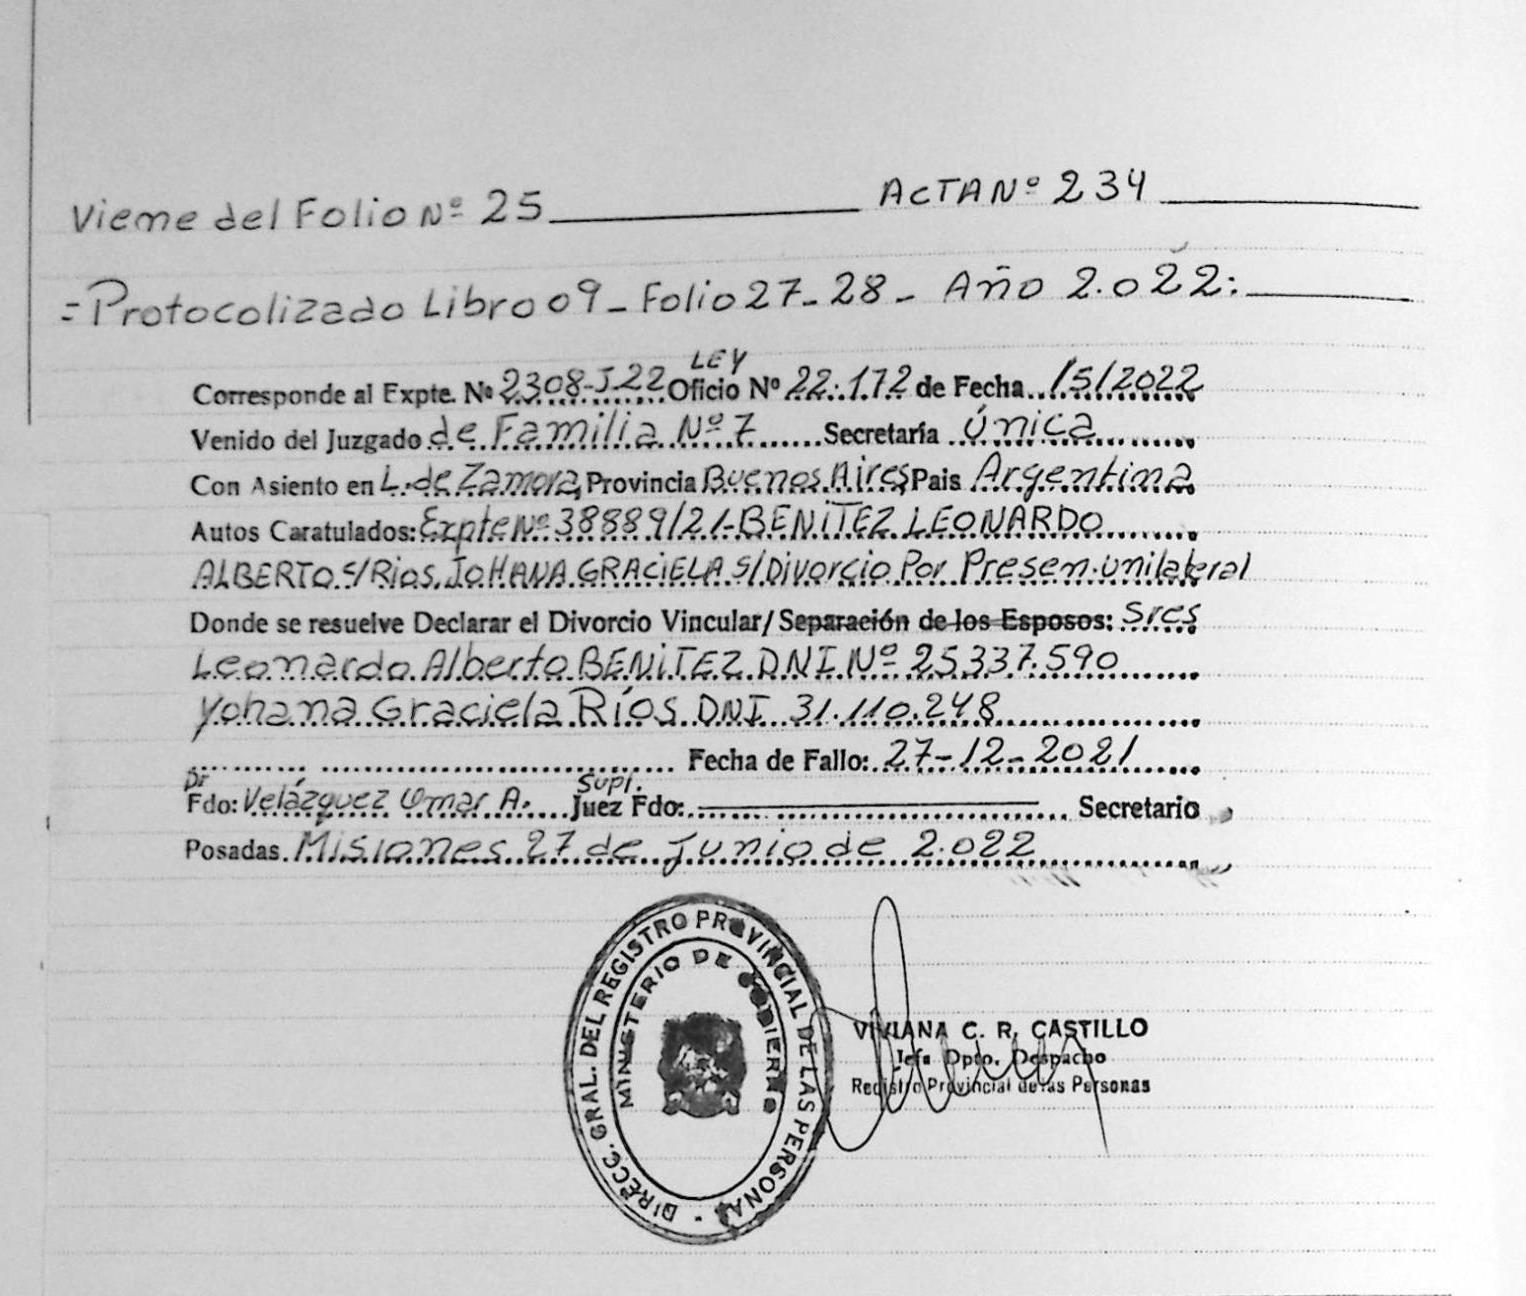 Viene del Folio Nº 25 ACTA Nº 234
=Protocolizado Libro 09 - Folio 27-28 - Año 2.022:
LEY
Corresponde al Expte. Nº 2308-J-22 Oficio Nº 22.172 de Fecha /5/2022
Venido del Juzgado de Familia Nº 7 Secretaría Única
Con Asiento en L. de Zamora, Provincia Buenos Aires, Pais Argentina
Autos Caratulados: Expte Nº 38889/21-BENITEZ LEONARDO
ALBERTO S/Rios JOHANA GRACIELA S/Divorcio Por Presen. unilateral
Donde se resuelve Declarar el Divorcio Vincular/ Separación de los Esposos: Sres
Leonardo Alberto BENITEZ DNI Nº 25.337.590
Yohana Graciela Ríos DNI 31.110.248
Fecha de Fallo: 27-12-2021
Dr Supl.
Fdo: Velázquez Omar A. Juez Fdo: Secretario
Posadas Misiones 27 de junio de 2.022
DIRECC. GRAL. DEL REGISTRO PROVINCIAL DE LAS PERSONAS -
MINISTERIO DE GOBIERNO
VIVIANA C. R. CASTILLO
Jefa Dpto. Despacho
Registro Provincial de las Personas